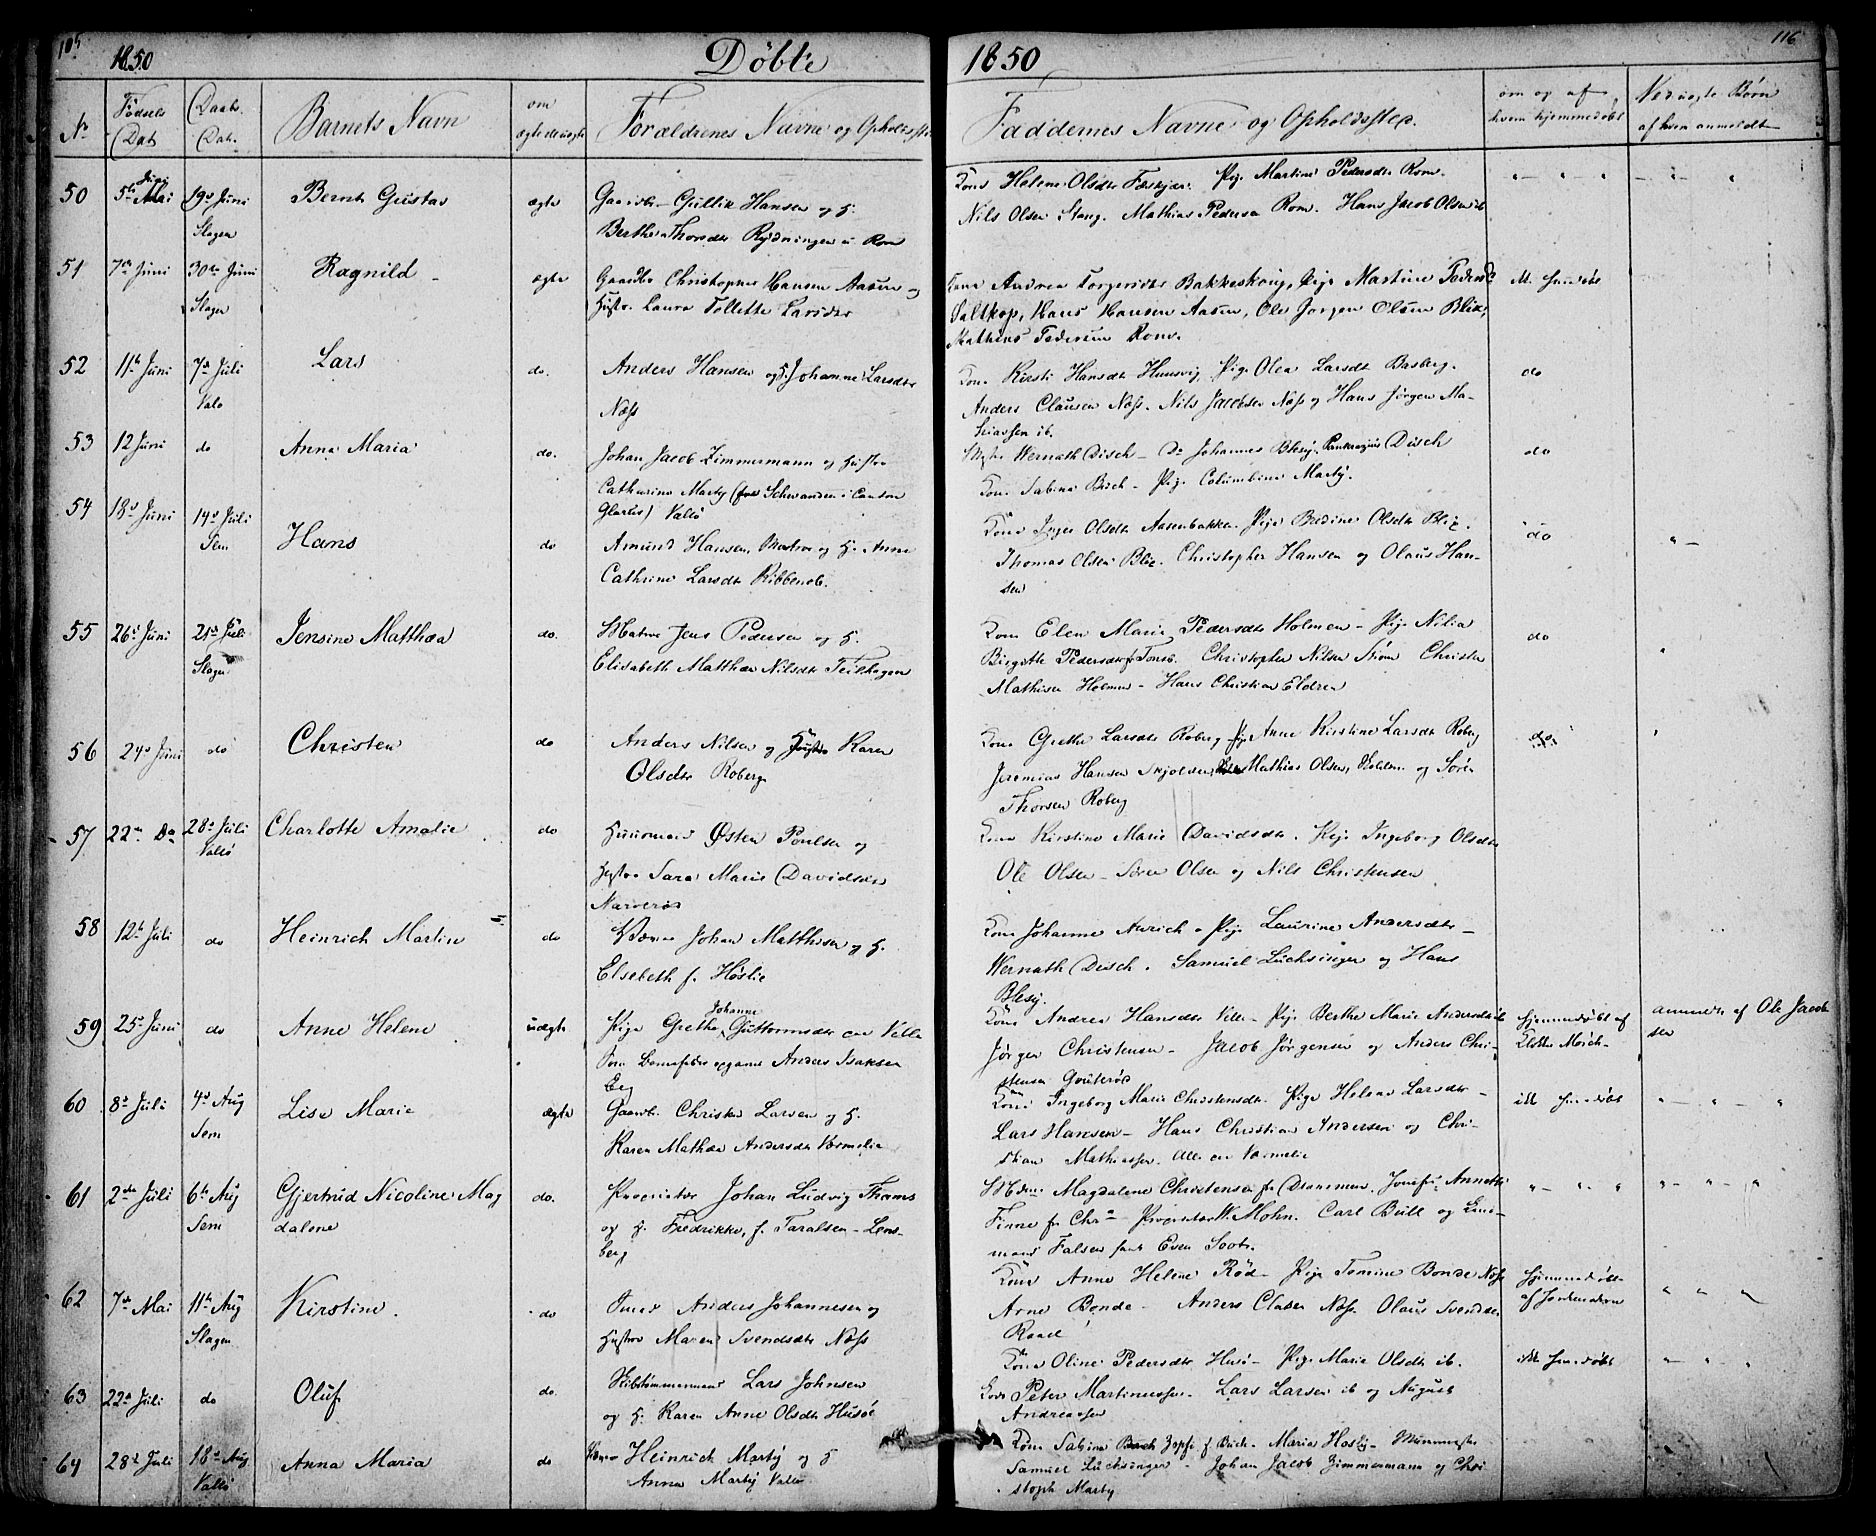 105
1850
Døbte
1850
116
No
Fødsels Dat
Daabs. Dat.
Barnets Navn
om ægte el uægte
Forældrenes Navne og Opholdsste
Faddernes Navne og Opholdssted.
om og af hvem hjemmedøbt
Veruægte Børn af hvem anmeldt
50
5te Juni
19de Juni
Slagen
Bernt Gustav
ægte
Gaardb. Gullik Hansen og H.
Berthe Thorsdtr Rydningen u Rom
Kone Helene Olsdtr Pige Martine Pedersdtr Rom.
Nils Olsen Stang. Mathias Pedersen Rom. Hans Jacob Olsen ib
51
7de Juni
30te Juni
Slagen
Ragnild
ægte
Gaardbr Christopher Hansen Aasen og
Hustr. Laura Tollette Larsdtr
Kone Andrea Torgersdtr Bakkeskoug, Pige Martine Pedersdtr
Saltkop, Hans Hansen Aasen, Ole Jørgen Olsen Blix,
Mathias Pedersen Rom.
52
11te Juni
7de Juli
Valø
Lars
do.
Anders Hansen og H. Johanne Larsdtr
Næss
Kone Kirsti Hansdtr Huusvig, Pige Olea Larsdtr Basberg.
Anders Clausen Næss. Nils Jacobsen Næss og Hans Jørgen Ma-
thiassen ib.
do
53
12 Juni
do
Anna Maria
do.
Johan Jacob Zimmermann og Hustru
Catharina Marty (fra Schwanden i Canton
Glarus) Vallø
Wernath Disch - Do Johannes Blesy. Pankrazius Disch
Kone Sabina Buch - Pige Columbine Marty.
do
54
18de Juni
14de Juli
Sem
Hans
do
Amund Hansen, Matros og H. Anne
Cathrine Larsdtr Ribbenob.
Kone Inger Olsdtr Aasenbakken. Pige Bredine Olsdtr Blix.
Thomas Olsen Blix. Christopher Hansen og Olaus Han-
sen
do
55
26de Juni
21de Juli
Slagen
Jensine Matthæa
do.
Matros Jens Pedersen og H.
Elisabeth Matthæa Nilsdtr Teilhagen
Kone Elen Marie Pedersdtr Holmen - Pige Nilia
Birgitte Pedersdtr f. Tønsb. Christopher Nilsen Christen
Mathisen Holmen - Hans Christian Eldren
do
56
24de Juni
do
Christen
do
Anders Nilsen og Hustru Karen
Olsdtr Roberg
Kone Grethe Larsdtr Roberg Pige Anne Kirstine Larsdtr Roberg
Jeremias Hansen Skjolden, Mathias Olsen, Holdem og Søren
Thorsen Roberg
do.
57
22de Do
28de Juli
Vallø
Charlotte Amalie
do
Huusmand Østen Poulsen og
Hustru Sara Marie Davidsdtr
Narverød
Kone Kirstine Marie Davidsdtr. Pige Ingeborg Olsdtr
Ole Olsen - Søren Olsen og Nils Christensen
58
12te Juli
do
Heinrich Martin
do
Væver Johan Matthisen og H.
Elsebeth f. Høslie
Kone Johanne Aurich - Pige Laurine Andersdtr -
Wernath Disch. Samuel Luchsinger og Hans
Blesy.
59
25de Juni
do
Anne Helene
uægte
Pige Grethe Johanne Guttormsdtr Velle
Som Barnefader opgaves Anders Isaksen
Eeg
Kone Andrea Hansdtr Velle - Pige Berthe Marie Andersdtr ib
Jørgen Christensen - Jacob Jørgensen og Anders Chri-
stensen Gouterød
hjemmedøbt af
Klokker Moich-
anmeldt af Ole Jacob
sen
60
8de Juli
4de Aug
Sem
Lise Marie
ægte
Gaardb. Christen Larsen og H.
Karen Mathea Andersdtr Vermelie
Kone Ingeborg Marie Christensdtr. Pige Helene Larsdtr -
Lars Hansen - Hans Christian Andersen og Chri-
stian Mathiassen. Alle
ikke hjemmedøbt
61
2den Juli
6te Aug
Sem
Gjertrud Nicoline Mag
dalene
do.
Proprietær Johan Ludvig Thams
og H. Fredrikke, f. Taralsen - Lens-
berg
Madame Magdalene Christensen fra Drammen. Jomfru Annette
Finne fr Chra - Proprietær W. Mohn. Carl Bull og
Falsen samt Even Soot.
62
7de Mai
11te Aug
Slagen
Kirstine.
do
Anders Johannesen og
Hustru Maren Svendsdtr Næss
Kone Anne Helene Rød - Pige Tomine Bonde Næss
Arne Bonde - Anders Clasen Næss Olaus Svendsen
Raael
hjemmedøbt
af Jordemoderen
63
22de Juli
do
Oluf
do.
Skibstømmermand Lars Johnsen
og H. Karen Anne Olsdtr Husøe
Kone Oline Pedersdtr Husø - Pige Marie Olsdtr ib.
Peter Martinussen - Lars Larsen ib og August
Andreassen
ikke hjemmedøbt
64
28de Juli
18de Aug
Vallø
Anna Maria
do
Heinrich Marty og H
Anna Marty Vallø
Kone Sabina Zopfi f. Buch - Maria Hosly -
Samuel Luchsinger - Johan Jacob Zimmermann og Chri
stoph Marty